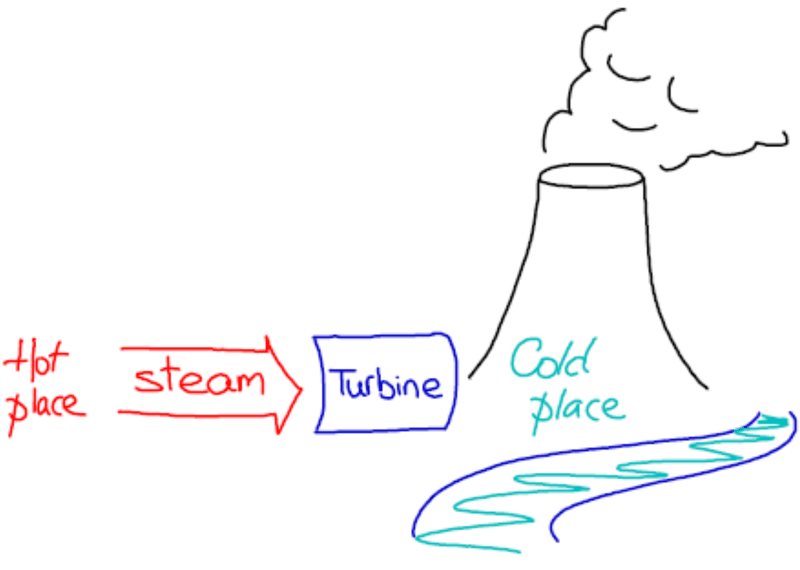 Hot
place
steam
Turbine
Cold
place